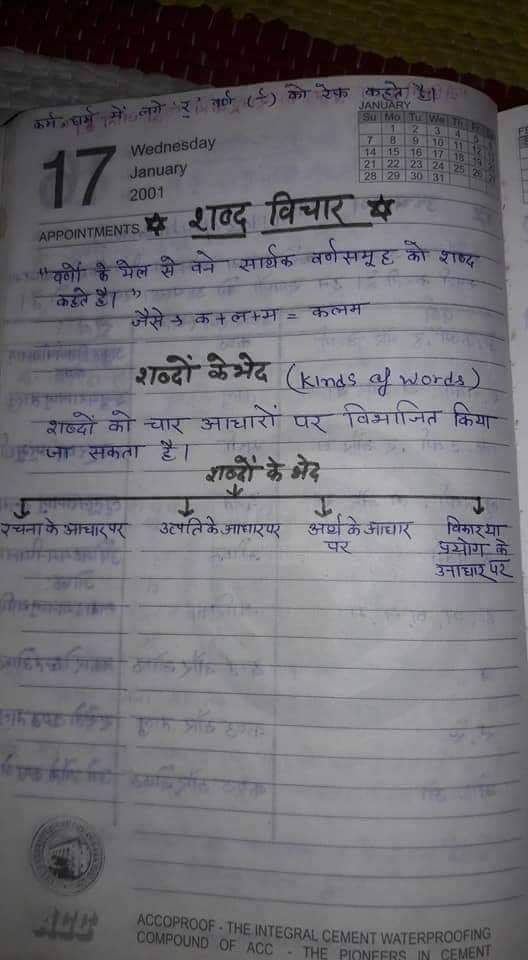 कर्म, धर्म में लगे 'र्' वर्ण (र्) को रेफ कहते है।
JANUARY
Su Mo Tu We Th Fr
1 2 3 4
7 8 9 10 11 12
14 15 16 17 18 19
21 22 23 24 25 26
28 29 30 31
17
Wednesday
January
2001
APPOINTMENTS
शब्द विचार
"वर्णो के मेल से बने सार्थक वर्णसमूह को शब्द
कहते है।"
जैसे → क+ल+म = कलम
शब्दों के भेद (Kinds of words)
शब्दों को चार आधारों पर विभाजित किया
जा सकता है।
शब्दों के भेद
रचना के आधार पर उत्पति के आधार पर अर्थ के आधार पर विकार या प्रयोग के आधार पर
ACC
ACCOPROOF - THE INTEGRAL CEMENT WATERPROOFING
COMPOUND OF ACC - THE PIONEERS IN CEMENT